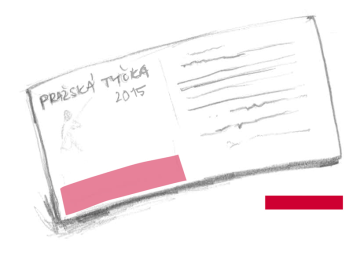 PRAŽSKÁ TYČKA
2015